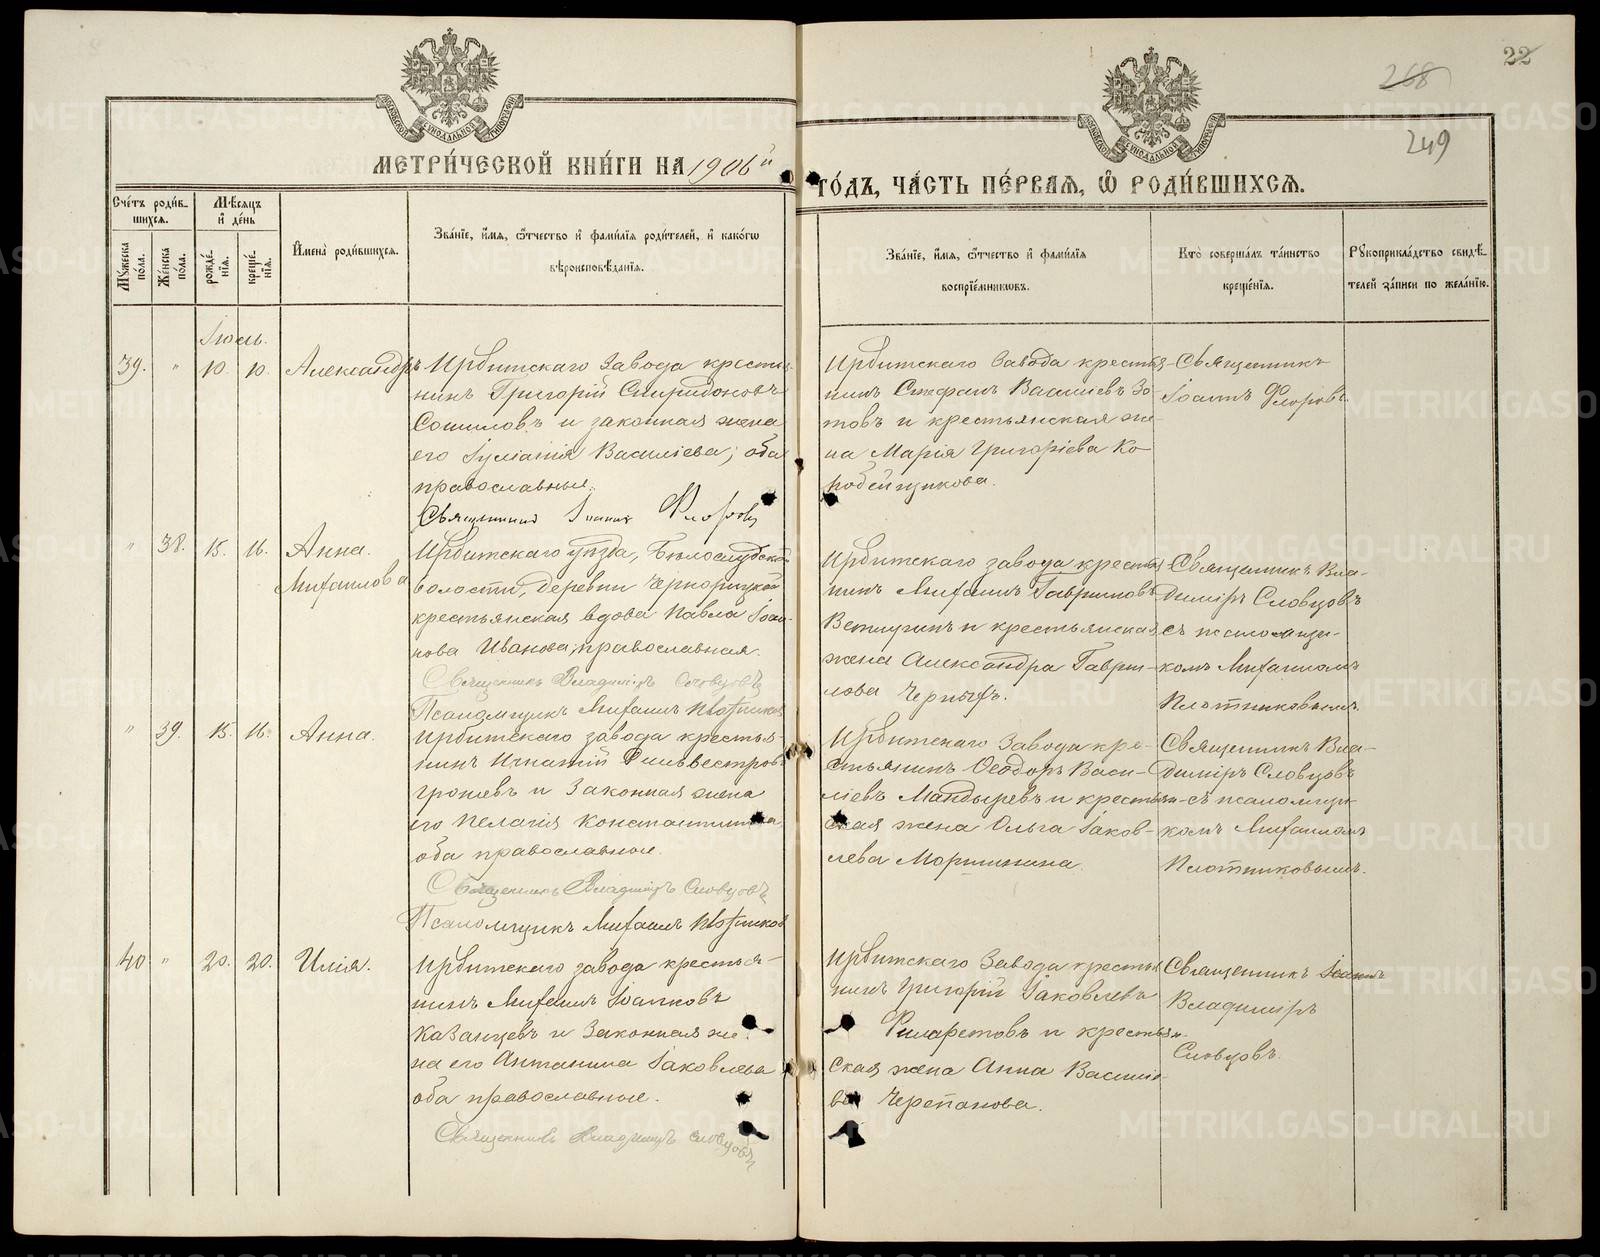 22
268
249
МЕТРИ́ЧЕСКОЙ КНИ́ГИ НА 1906й
ГО́ДЪ, ЧА́СТЬ ПЕ́РВАЯ, Ѡ РОДИ́ВШИХСЯ.
Сче́тъ роди́в-
шихся.
Мѣ́сяцъ
и де́нь
Мꙋжеска по́ла.
Же́нска по́ла.
рожде́нїя.
креще́нїя.
Имена̀ роди́вшихся.
Зва́нїе, и́мя, ѻ́тчество и фами́лїя роди́телей, и како́гѡ
вѣроисповѣ́данїя.
Зва́нїе, и́мя, ѻ́тчество и фами́лїя
воспрїе́мникѡвъ.
Кто̀ соверша́лъ та́инство
креще́нїя.
Рꙋкоприкла́дство свидѣ́-
телей за́писи по жела́нїю.
Іюль.
39. " 10. 10. Александръ
Ирбитскаго Завода крестья-
нинъ Григорій Спиридоновъ
Сошиловъ и законная жена
его Іуліанія Василіева; оба
православные.
Священникъ Іоаннъ Флоровъ
Ирбитскаго Завода крестья-
нинъ Стефанъ Василіевъ Зо-
товъ и крестьянская же-
на Марія Григоріева Ко-
робейщикова.
Священникъ
Іоаннъ Флоровъ
" 38. 15. 16. Анна.
Михаилова
Ирбитскаго уѣзда, Бѣлослудской
волости, деревни Чернорицкой
крестьянская вдова Павла Іоан-
нова Иванова, православная.
Священникъ Владиміръ Словцовъ
Псаломщикъ Михаилъ Плотниковъ
Ирбитскаго завода крестья-
нинъ Михаилъ Гавриловъ
Ветлугинъ и крестьянская
жена Александра Гаври-
лова Черныхъ.
Священникъ Вла-
диміръ Словцовъ
съ псаломщи-
комъ Михаиломъ
Плотниковымъ.
" 39. 15. 16. Анна.
Ирбитскаго завода крестья-
нинъ Игнатій Сильвестровъ
и Законная жена
его Пелагія Константинова,
оба православные.
Священникъ Владиміръ Словцовъ
Псаломщикъ Михаилъ Плотниковъ
Ирбитскаго Завода кре-
стьянинъ Ѳеодоръ Васи-
ліевъ Мандыревъ и крестьян-
ская жена Ольга Іаков-
лева
Священникъ Вла-
диміръ Словцовъ
съ псаломщи-
комъ Михаиломъ
Плотниковымъ.
40 " 20. 20. Илія.
Ирбитскаго завода крестья-
нинъ Михаилъ Іоанновъ
Казанцевъ и Законная же-
на его Антонина Іаковлева
оба православные.
Священникъ Владиміръ Словцовъ
Ирбитскаго Завода крестья-
нинъ Григорій Іаковлевъ
Филаретовъ и крестьян-
ская жена Анна Василіе-
ва Черепанова.
Священникъ
Владиміръ
Словцовъ.